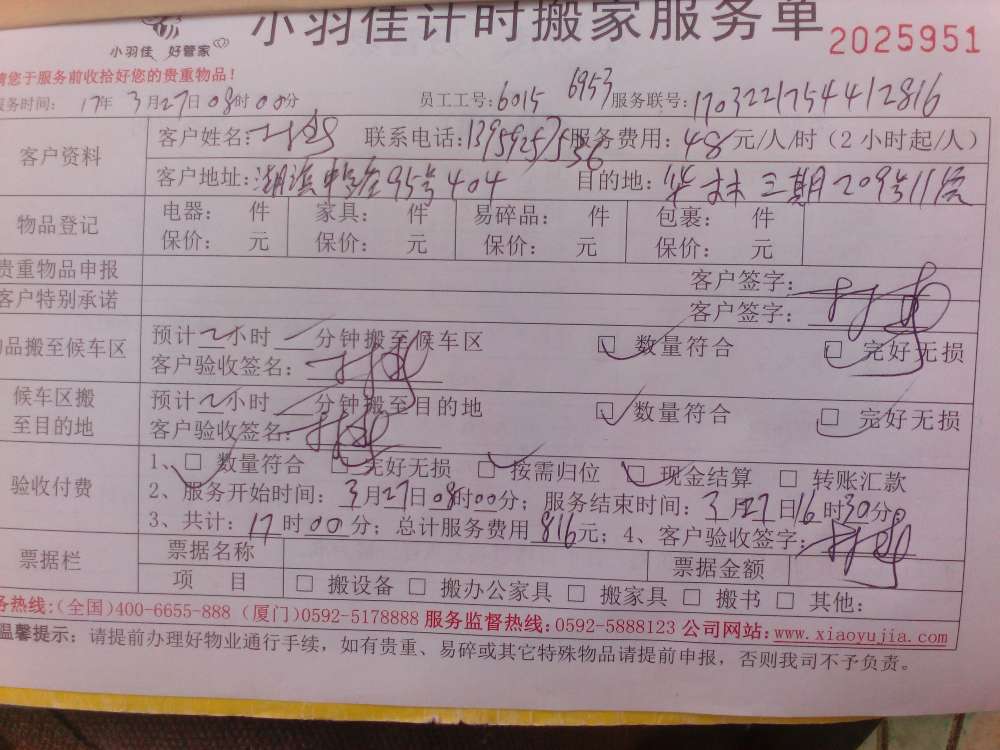 小羽佳 好管家
小羽佳计时搬家服务单
2025951
请您于服务前收拾好您的贵重物品！
服务时间： 17年 3月27日08时00分 员工工号：6015 6953 服务联号：1703221754412816
客户资料
客户姓名： 联系电话：13959257536 服务费用：48元/人/时（2小时起/人）
客户地址：湖滨中路95号404 目的地：华林三期209号11
物品登记
电器： 件 家具： 件 易碎品： 件 包裹： 件
保价： 元 保价： 元 保价： 元 保价： 元
贵重物品申报 客户签字：
客户特别承诺 客户签字：
物品搬至候车区
预计2小时 分钟搬至候车区 数量符合 完好无损
客户验收签名：
候车区搬
至目的地
预计2小时 分钟搬至目的地 数量符合 完好无损
客户验收签名：
验收付费
1、 数量符合 完好无损 按需归位 现金结算 转账汇款
2、服务开始时间：3月27日08时00分；服务结束时间：3月27日16时30分。
3、共计：17时00分；总计服务费用816元；4、客户验收签字：
票据栏
票据名称 票据金额
项 目 搬设备 搬办公家具 搬家具 搬书 其他：
服务热线：（全国）400-6655-888（厦门）0592-5178888 服务监督热线：0592-5888123 公司网站：www.xiaoyujia.com
温馨提示：请提前办理好物业通行手续，如有贵重、易碎或其它特殊物品请提前申报，否则我司不予负责。